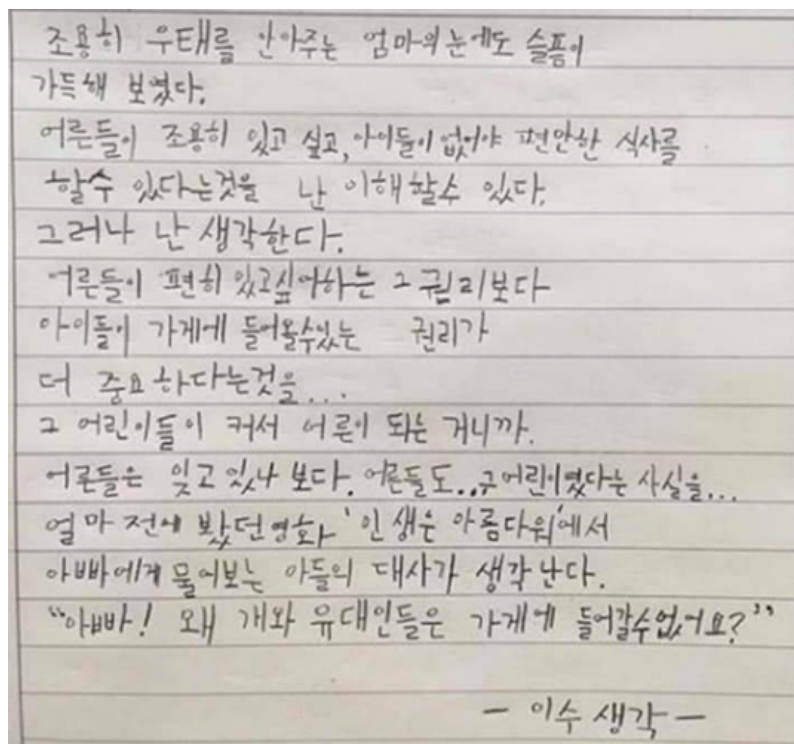 조용히 우태를 안아주는 엄마의 눈에도 슬픔이
가득해 보였다.
어른들이 조용히 있고 싶고, 아이들이 없어야 편안한 식사를
할수 있다는것을 난 이해할수 있다.
그러나 난 생각한다.
어른들이 편히 있고싶어하는 그 권리보다
아이들이 가게에 들어올수있는 권리가
더 중요하다는것을...
그 어린이들이 커서 어른이 되는 거니까.
어른들은 잊고 있나 보다. 어른들도.. 어린이였다는 사실을...
얼마 전에 봤던 영화 '인생은 아름다워'에서
아빠에게 물어보는 아들의 대사가 생각난다.
"아빠! 왜 개와 유대인들은 가게에 들어갈수없어요?"
- 이수 생각 -